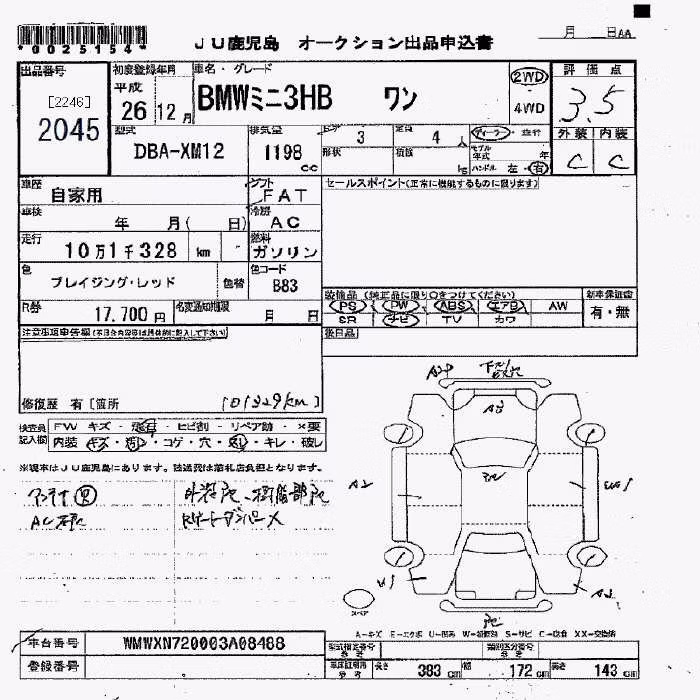 *0025154*
JU鹿児島 オークション出品申込書
月 日AA
出品番号
[2246]
2045
初度登録年月
平成
26 12 月
車名・グレード
BMWミニ3HB ワン
2WD
4WD
評価点
3.5
外装 内装
C C
型式
DBA-XM12
排気量
1198 cc
ドア 3
定員 4 人
形状
積載 kg
ディーラー・並行
モデル年式 年
ハンドル 左・右
車歴
自家用
シフト
FAT
車検
年 月( 日)
冷房
AC
走行
10万1千328 km
燃料
ガソリン
色
ブレイジング・レッド
色替
色コード
B83
R券
17,700 円
名変通知期限
月 日
セールスポイント(正常に機能するものに限ります)
装備品 (純正品に限り○をつけてください)
PS PW ABS エアB AW
SR ナビ TV カワ
新車保証書
有・無
後日品
注意事項申告欄
修復歴 有 [箇所
101329km]
検査員記入欄
FW キズ・飛石・ヒビ割・リペア跡・×要
内装 キズ・汚れ・コゲ・穴・・キレ・破レ
※現車はJU鹿児島にあります。陸送費は落札店負担となります。
A2
A2
W1
スペア
A=キズ E=エクボ U=凹み W=補修跡 S=サビ C=腐食 XX=交換済
車台番号
WMWXN720003A08488
登録番号
型式指定番号 参考
類別区分番号 参考
車体証明用 参考
長さ 383 cm 幅 172 cm 高さ 143 cm